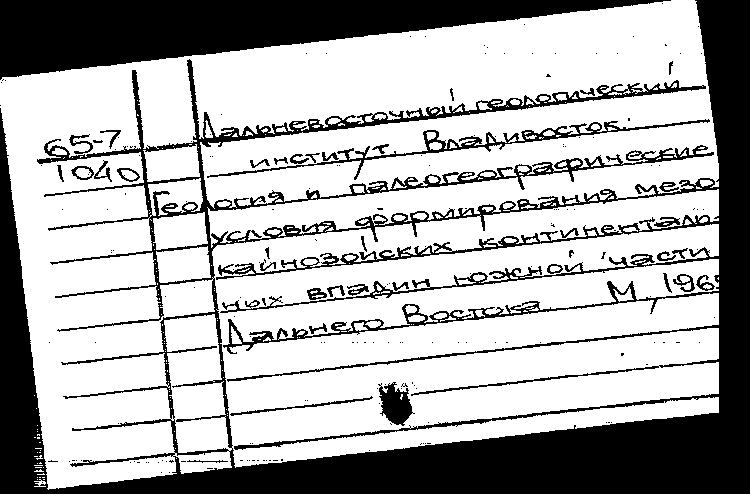 65-7
1040
Дальневосточный геологический
институт. Владивосток.
Геология и палеогеографические
условия формирования мезо-
кайнозойских континенталь-
ных впадин южной части
Дальнего Востока М, 1965